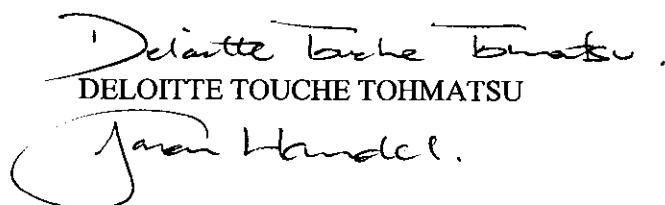 Deloitte Touche Tohmatsu.
DELOITTE TOUCHE TOHMATSU
Jason Handel.